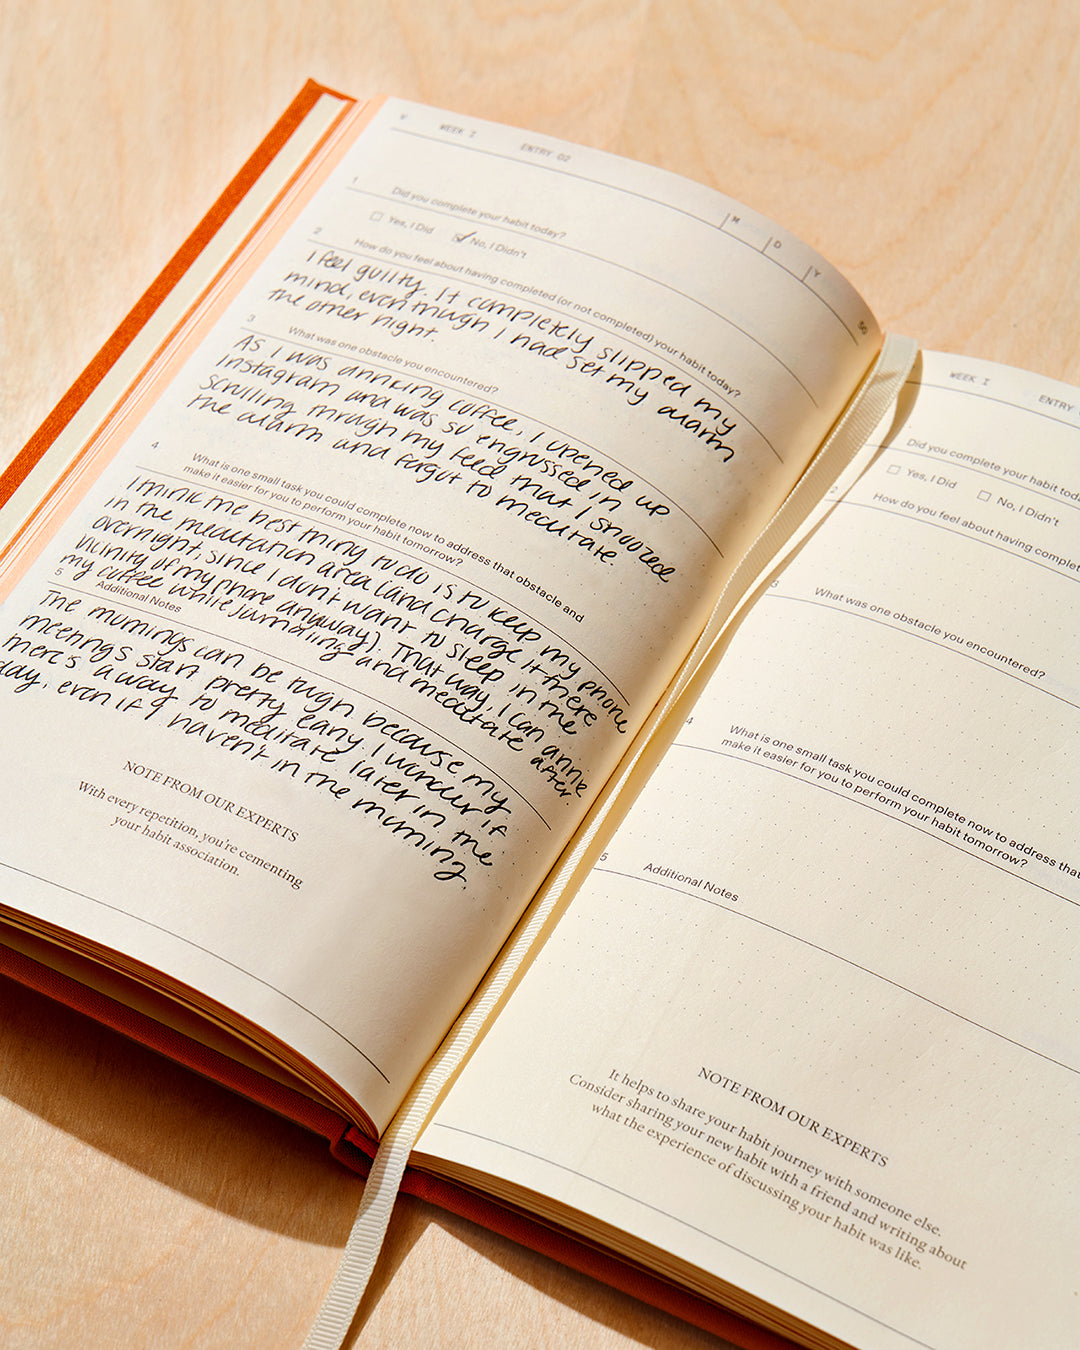 V WEEK I ENTRY 02
M D Y
1 Did you complete your habit today?
Yes, I Did No, I Didn't
2 How do you feel about having completed (or not completed) your habit today?
I feel guilty. It completely slipped my
mind, even though I had set my alarm
the other night.
3 What was one obstacle you encountered?
As I was drinking coffee, I opened up
Instagram and was so engrossed in
scrolling through my feed that I snoozed
the alarm and forgot to meditate.
4 What is one small task you could complete now to address that obstacle and
make it easier for you to perform your habit tomorrow?
I think the best thing to do is to keep my phone
in the meditation area (and charge it there
overnight, since I don't want to sleep in the
vicinity of my phone anyway). That way, I can drink
my coffee while journaling and meditate after.
5 Additional Notes
The mornings can be rough because my
meetings start pretty early. I wonder if
there's a way to meditate later in the
day, even if I haven't in the morning.
NOTE FROM OUR EXPERTS
With every repetition, you're cementing
your habit association.
50
WEEK I ENTRY
Did you complete your habit toda
Yes, I Did No, I Didn't
2 How do you feel about having complet
3 What was one obstacle you encountered?
4 What is one small task you could complete now to address that
make it easier for you to perform your habit tomorrow?
5 Additional Notes
NOTE FROM OUR EXPERTS
It helps to share your habit journey with someone else.
Consider sharing your new habit with a friend and writing about
what the experience of discussing your habit was like.